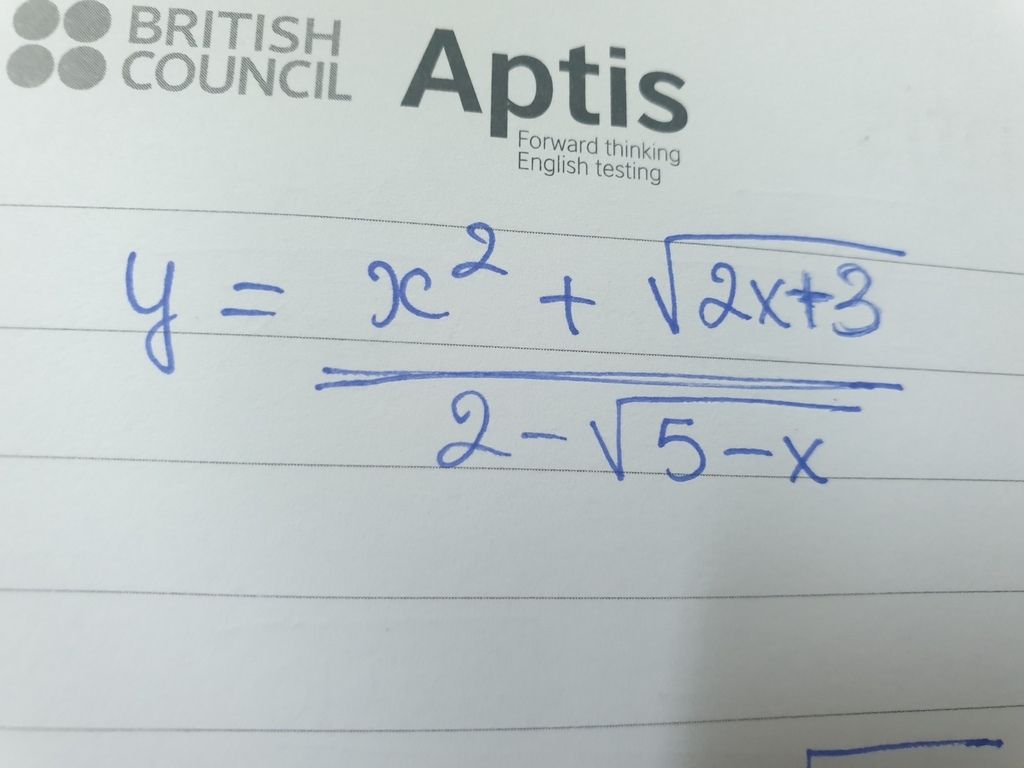 BRITISH
COUNCIL
Aptis
Forward thinking
English testing
y = x² + √(2x+3)
2 - √(5-x)